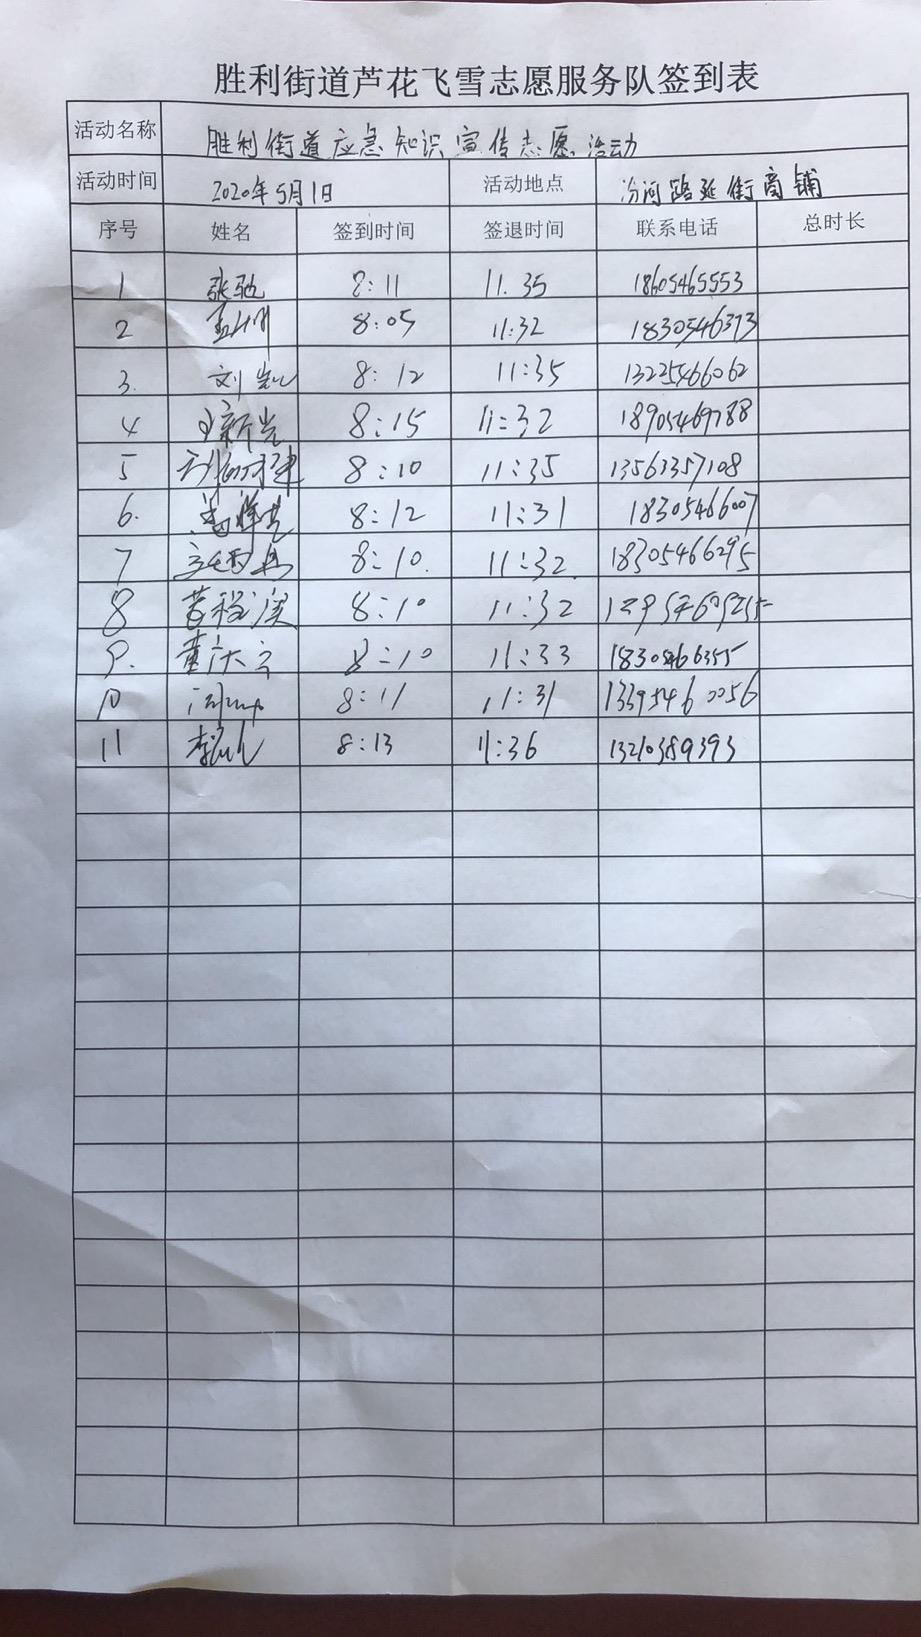 胜利街道芦花飞雪志愿服务队签到表
活动名称 胜利街道应急知识宣传志愿活动
活动时间 2020年5月1日 活动地点 汾河路延街商铺
序号 姓名 签到时间 签退时间 联系电话 总时长
1 张驰 8:11 11:35 18605465553
2 8:05 11:32 18305463
3. 刘凯 8:12 11:35 13225466062
4 王新光 8:15 11:32 18905469788
5 8:10 11:35 13563357108
6. 8:12 11:31 18305466007
7 8:10. 11:32. 18305466295
8 8:10 11:32
9. 董 8:10 11:33 18305466355
10 8:11 11:31 13395460056
11 李 8:13 11:36 13210389393